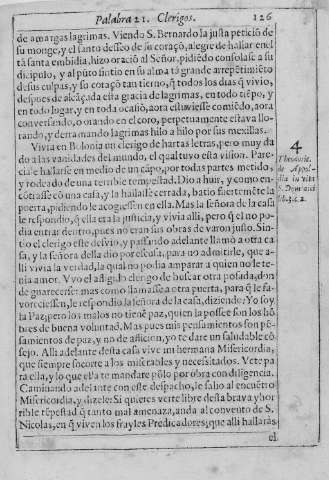 Palabra 21. Clerigos. 126
de amargas lagrimas. Viendo S. Bernardo la justa peticiõ de
su monge, y el santo desseo de su coraçõ, alegre de hallar en el
tã santa embidia, hizo oraciõ al Señor, pidiẽdo consolasse a su
dicipulo, y al pũto sintio en su alma tã grande arrepẽtimiẽto
de sus culpas, y su coraçõ tan tierno, q̃ todos los dias q̃ vivio,
despues de alcãçada esta gracia de lagrimas, en todo tiẽpo, y
en todo lugar, y en toda ocasiõ, aora estuviesse comiẽdo, aora
conversando, o orando en el coro, perpetuamente estava llo-
rando, y derramando lagrimas hilo a hilo por sus mexillas.
Vivia en Bolonia un clerigo de hartas letras, pero muy da
do a las vanidades del mundo, el qual tuvo esta vision. Pare-
ciale hallarse en medio de un cãpo, por todas partes metido,
y rodeado de una terrible tempestad. Dio a huir, y como en-
cõtrasse cõ una casa, y la hallasse cerrada, batio fuertemẽte la
puerta, pidiendo le acogiessen en ella. Mas la señora de la casa
le respondio, q̃ ella era la justicia, y vivia alli, pero q̃ el no po-
dia entrar dentro, pues no eran sus obras de varon justo. Sin-
tio el clerigo este desvio, y passando adelante llamò a otra ca
sa, y la señora della dio por escusa, para no admitirle, que a-
lli vivia la verdad, la qual no podia amparar a quien no le te-
nia amor. Vvo el afligido clerigo de buscar otra posada, don
de guarecerse: mas como llamasse a otra puerta, para q̃ le fa-
voreciessen, le respondio la señora de la casa, diziendo: Yo soy
la Paz; pero los malos no tienẽ paz, quien la possee son los hõ-
bres de buena voluntad. Mas pues mis pensamientos son pẽ-
samientos de paz, y no de aflicion, yo te dare un saludable cõ-
sejo. Alli adelante desta casa vive mi hermana Misericordia,
que siempre socorre a los miserables y necessitados. Vete pa
ra ella, y lo que ella te mandare põlo por obra con diligencia.
Caminando adelante con este despacho, le salio al encuẽtro
Misericordia, y dizele: Si quieres verte libre desta brava y hor
rible tẽpestad q̃ tanto mal amenaza, anda al convento de S.
Nicolas, en q̃ viven los frayles Predicadores; que alli hallaràs
el
4
Theodoric.
de Apol-
dia in vita
S. Dominici
lib.3.c.2.